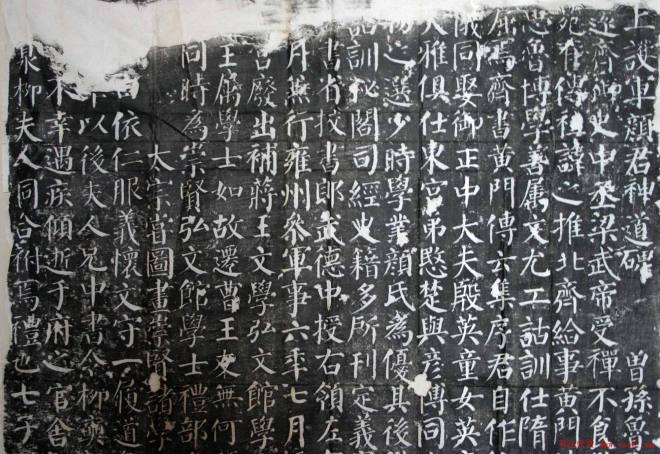 上護軍顏君神道碑 曾孫魯
齊御史中丞梁武帝受禪不食
苑有傳祖諱之推北齊給事黃門
思魯博學善屬文尤工詁訓仕隋
屈焉齊書黃門傳云集序君自作
儀同娶御正中大夫殷英童女英
大雅俱仕東宮弟愍楚與彥博同
物之選少時學業顏氏為優其後
詁訓秘閣司經史籍多所刊定義
書省校書郎武德中授右領左
月兼行雍州參軍事六年七月
宮廢出補蔣王文學弘文館學
王屬學士如故遷曹王友無何
同時為崇賢弘文館學士禮部
太宗嘗圖畫崇賢諸學
依仁服義懷文守一履道
以後夫人兄中書令柳奭
不幸遇疾傾逝于府之官舍
泉柳夫人同合祔焉禮也七子